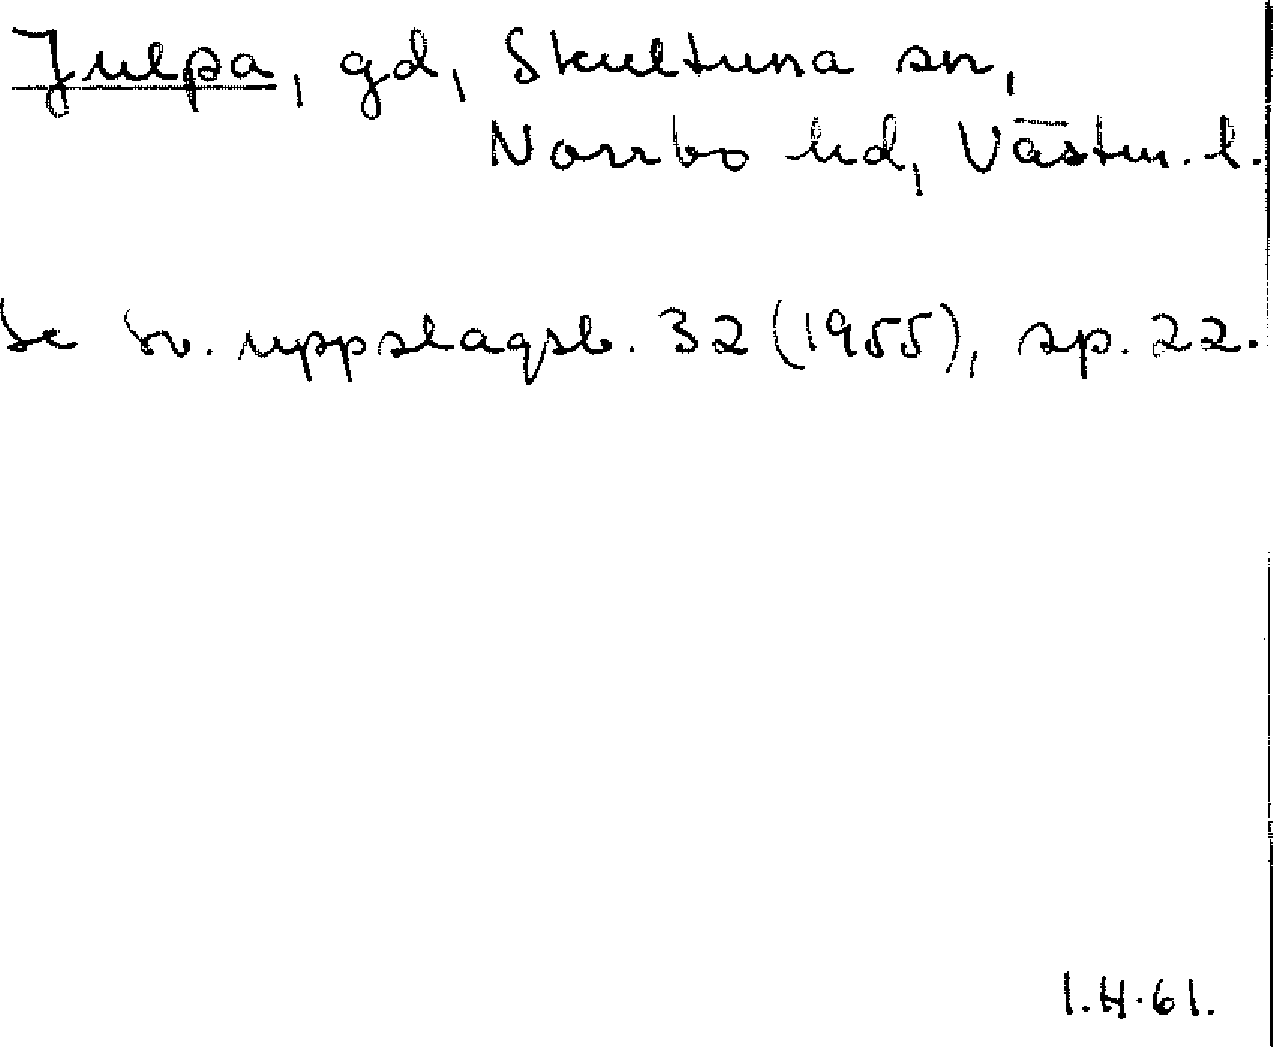 Julpa, gd, Skultuna sn,
Norrbo hd, Västm. l.
Se Sv. uppslagsb. 32 (1955), sp. 22.
1.4.61.